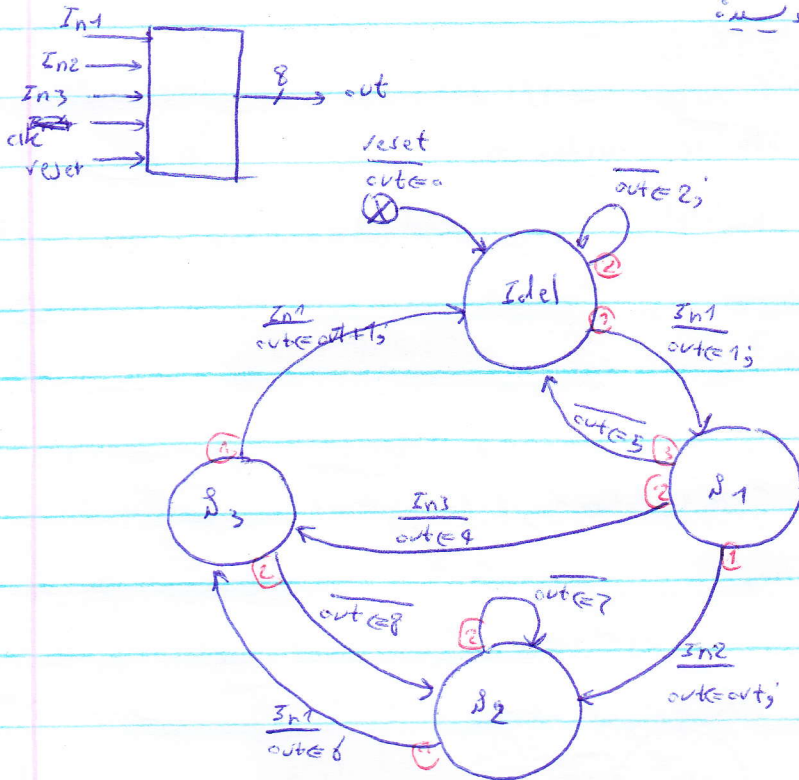 In1
In2
In3
clk
reset
8
out
reset
out<=0
out<=2;
Idel
2
1
In1
out<=out+1;
In1
out<=1;
out<=5
3
2
1
S1
1
S3
2
In3
out<=4
out<=8
out<=7
2
S2
1
In2
out<=out;
In1
out<=6